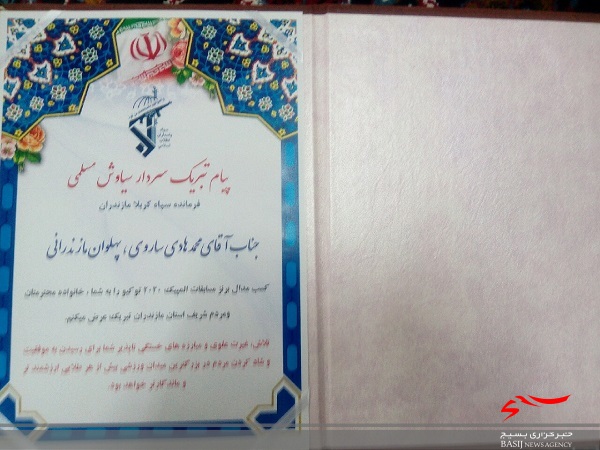 سپاه
پاسداران
انقلاب
اسلامی
پیام تبریک سردار سیاوش مسلمی
فرمانده سپاه کربلا مازندران
جناب آقای محمدهادی ساروی، پهلوان مازندرانی
کسب مدال برنز مسابقات المپیک ۲۰۲۰ توکیو را به شما، خانواده محترمتان
ومردم شریف استان مازندران تبریک عرض میکنم.
تلاش، غیرت علوی و مبارزه های خستگی ناپذیر شما برای رسیدن به موفقیت
و شاد کردن مردم در بزرگترین میدان ورزشی بیش از هر طلایی ارزشمند تر
و ماندگارتر خواهد بود.
بسیج
خبرگزاری بسیج
BASIJ NEWS AGENCY